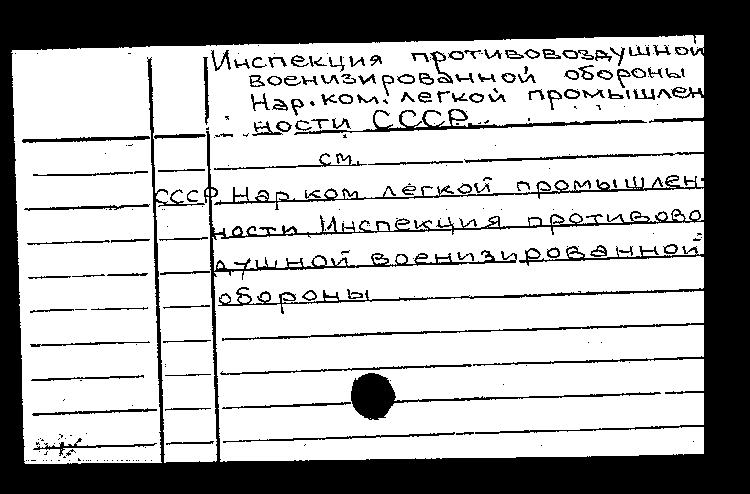 Инспекция противовоздушной
военизированной обороны
Нар.ком. легкой промышлен
ности СССР.
см.
СССР. Нар.ком легкой промышлен-
ности. Инспекция противово
душной военизированной
обороны